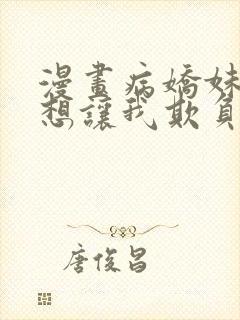 漫畫病嬌妹
想讓我欺負
唐俊昌